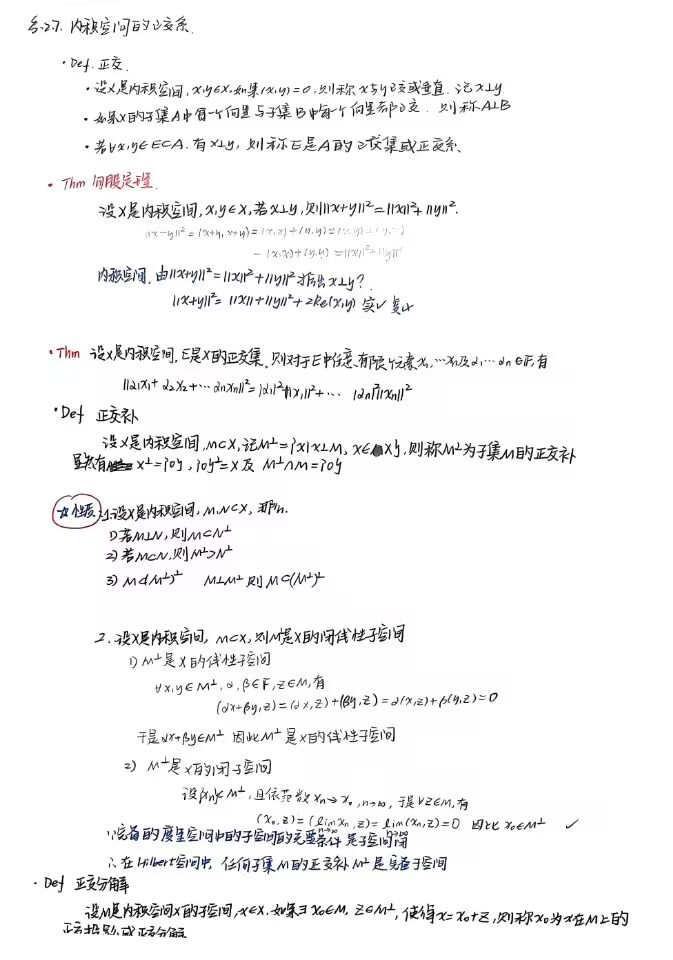 §.2.7. 内积空间的正交系.
· Def. 正交.
· 设X是内积空间, x,y∈X, 如果(x,y)=0, 则称x与y正交或垂直. 记x⊥y
· 如果X的子集A中每一个向量与子集B中每一个向量都正交. 则称A⊥B
· 若∀x,y∈E⊂A. 有x⊥y, 则称E是A的正交集或正交系.
· Thm 勾股定理.
设X是内积空间, x,y∈X, 若x⊥y, 则||x+y||²=||x||²+||y||².
||x-y||² = (x+y, x+y) = (x,x)+(x,y)=(x,y)+(y,
= (x,x)+(y,y) = ||x||²+||y||²
内积空间. 由||x+y||²=||x||²+||y||²推出x⊥y?
||x+y||²= ||x||+||y||²+2Re(x,y) 实✓ 复✗
· Thm 设X是内积空间, E是X的正交集. 则对于E中任意有限个元素x₁,…xₙ及α₁…αₙ∈F, 有
||α₁x₁+α₂x₂+…αₙxₙ||²=|α₁|²||x₁||²+… |αₙ|²||xₙ||²
· Def 正交补
设X是内积空间, M⊂X, 记M^⊥={x|x⊥M, x∈X}, 则称M^⊥为子集M的正交补
显然有 X^⊥={0}, {0}^⊥=X及 M^⊥∩M={0}
☆性质 1.设X是内积空间, M.N⊂X, 那么.
1) 若M⊥N, 则M⊂N^⊥
2) 若M⊂N, 则M^⊥⊃N^⊥
3) M⊂(M^⊥)^⊥ M⊥M^⊥ 则M⊂(M^⊥)^⊥
2. 设X是内积空间, M⊂X, 则M^⊥是X的闭线性子空间
1) M^⊥是X的线性子空间
∀x,y∈M^⊥, α,β∈F, z∈M, 有
(αx+βy,z)=(αx,z)+(βy,z)=α(x,z)+β(y,z)=0
于是αx+βy∈M^⊥ 因此M^⊥是X的线性子空间
2) M^⊥是X的闭子空间
设{xₙ}⊂M^⊥, 且依范数xₙ→x₀, n→∞, 于是∀z∈M, 有
(x₀,z)=(lim_{n→∞}xₙ,z)=lim_{n→∞}(xₙ,z)=0 因此x₀∈M^⊥ ✓
∵完备的度量空间中的子空间的完备条件是子空间闭
∴在Hilbert空间中, 任何子集M的正交补M^⊥是完备子空间
· Def 正交分解
设M是内积空间X的子空间, x∈X. 如果∃x₀∈M, z∈M^⊥, 使得x=x₀+z, 则称x₀为x在M上的
正交投影或正交分解